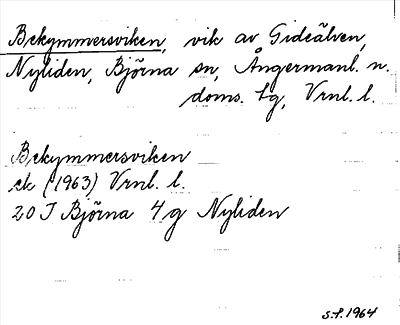 Bekymmersviken, vik av Gideälven,
Nyliden, Björna sn, Ångermanl. n.
doms. tg, Vrnl. l.
Bekymmersviken
ek (1963) Vrnl. l.
20 J Björna 4 g Nyliden
s.f. 1964